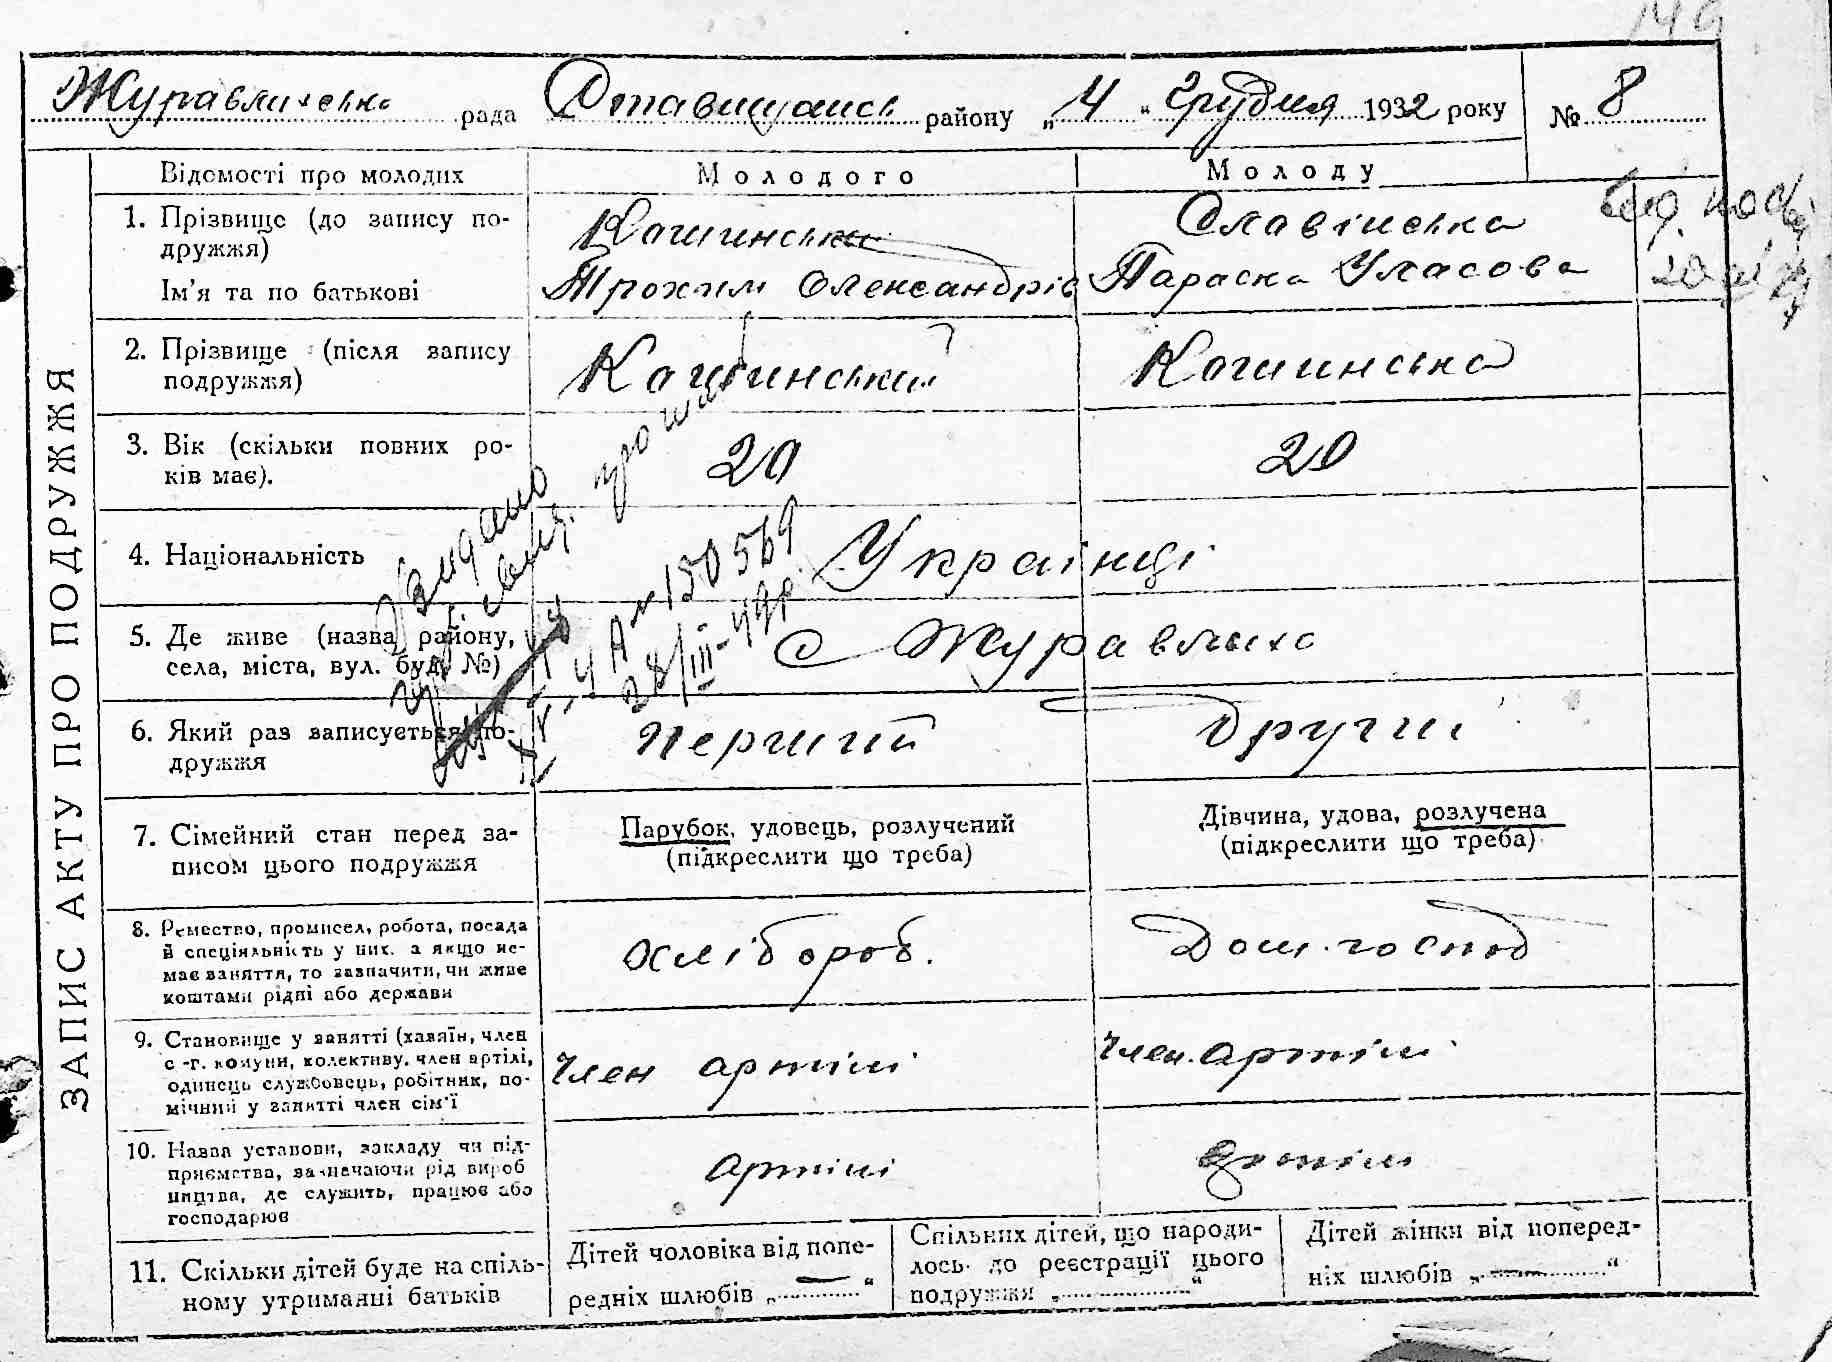 149
Журавлихська рада Ставищанськ району „4“ Грудня 1932 року № 8
ЗАПИС АКТУ ПРО ПОДРУЖЖЯ
Відомості про молодих
Молодого
Молоду
1. Прізвище (до запису по-
дружжя)
Ім’я та по батькові
Трохим Олександрів
Славінська
Параска Уласова
2. Прізвище (після запису
подружжя)
Кашинський
Кашинська
3. Вік (скільки повних ро-
ків має).
20
20
4. Національність
Українці
5. Де живе (назва району,
села, міста, вул. буд. №)
с Журавлиха
Видано
28/III-49р.
6. Який раз записується по-
дружжя
Перший
Другий
7. Сімейний стан перед за-
писом цього подружжя
Парубок, удовець, розлучений
(підкреслити що треба)
Дівчина, удова, розлучена
(підкреслити що треба)
8. Ремество, промисел, робота, посада
й спеціяльність у них, а якщо не-
має заняття, то зазначити, чи живе
коштами рідні або держави
Хлібороб.
Дом. господ
9. Становище у занятті (хазяїн, член
с.-г. комуни, колективу, член артілі,
одинець службовець, робітник, по-
мічний у занятті член сім’ї
Член артілі
Член. артілі
10. Назва установи, закладу чи під-
приємства, зазначаючи рід вироб
ництва, де служить, працює або
господарює
артілі
артілі
11. Скільки дітей буде на спіль-
ному утриманні батьків
Дітей чоловіка від попе-
редніх шлюбів „—“
Спільних дітей, що народи-
лось до реєстрації цього
подружжя „ “
Дітей жінки від поперед-
ніх шлюбів „—“